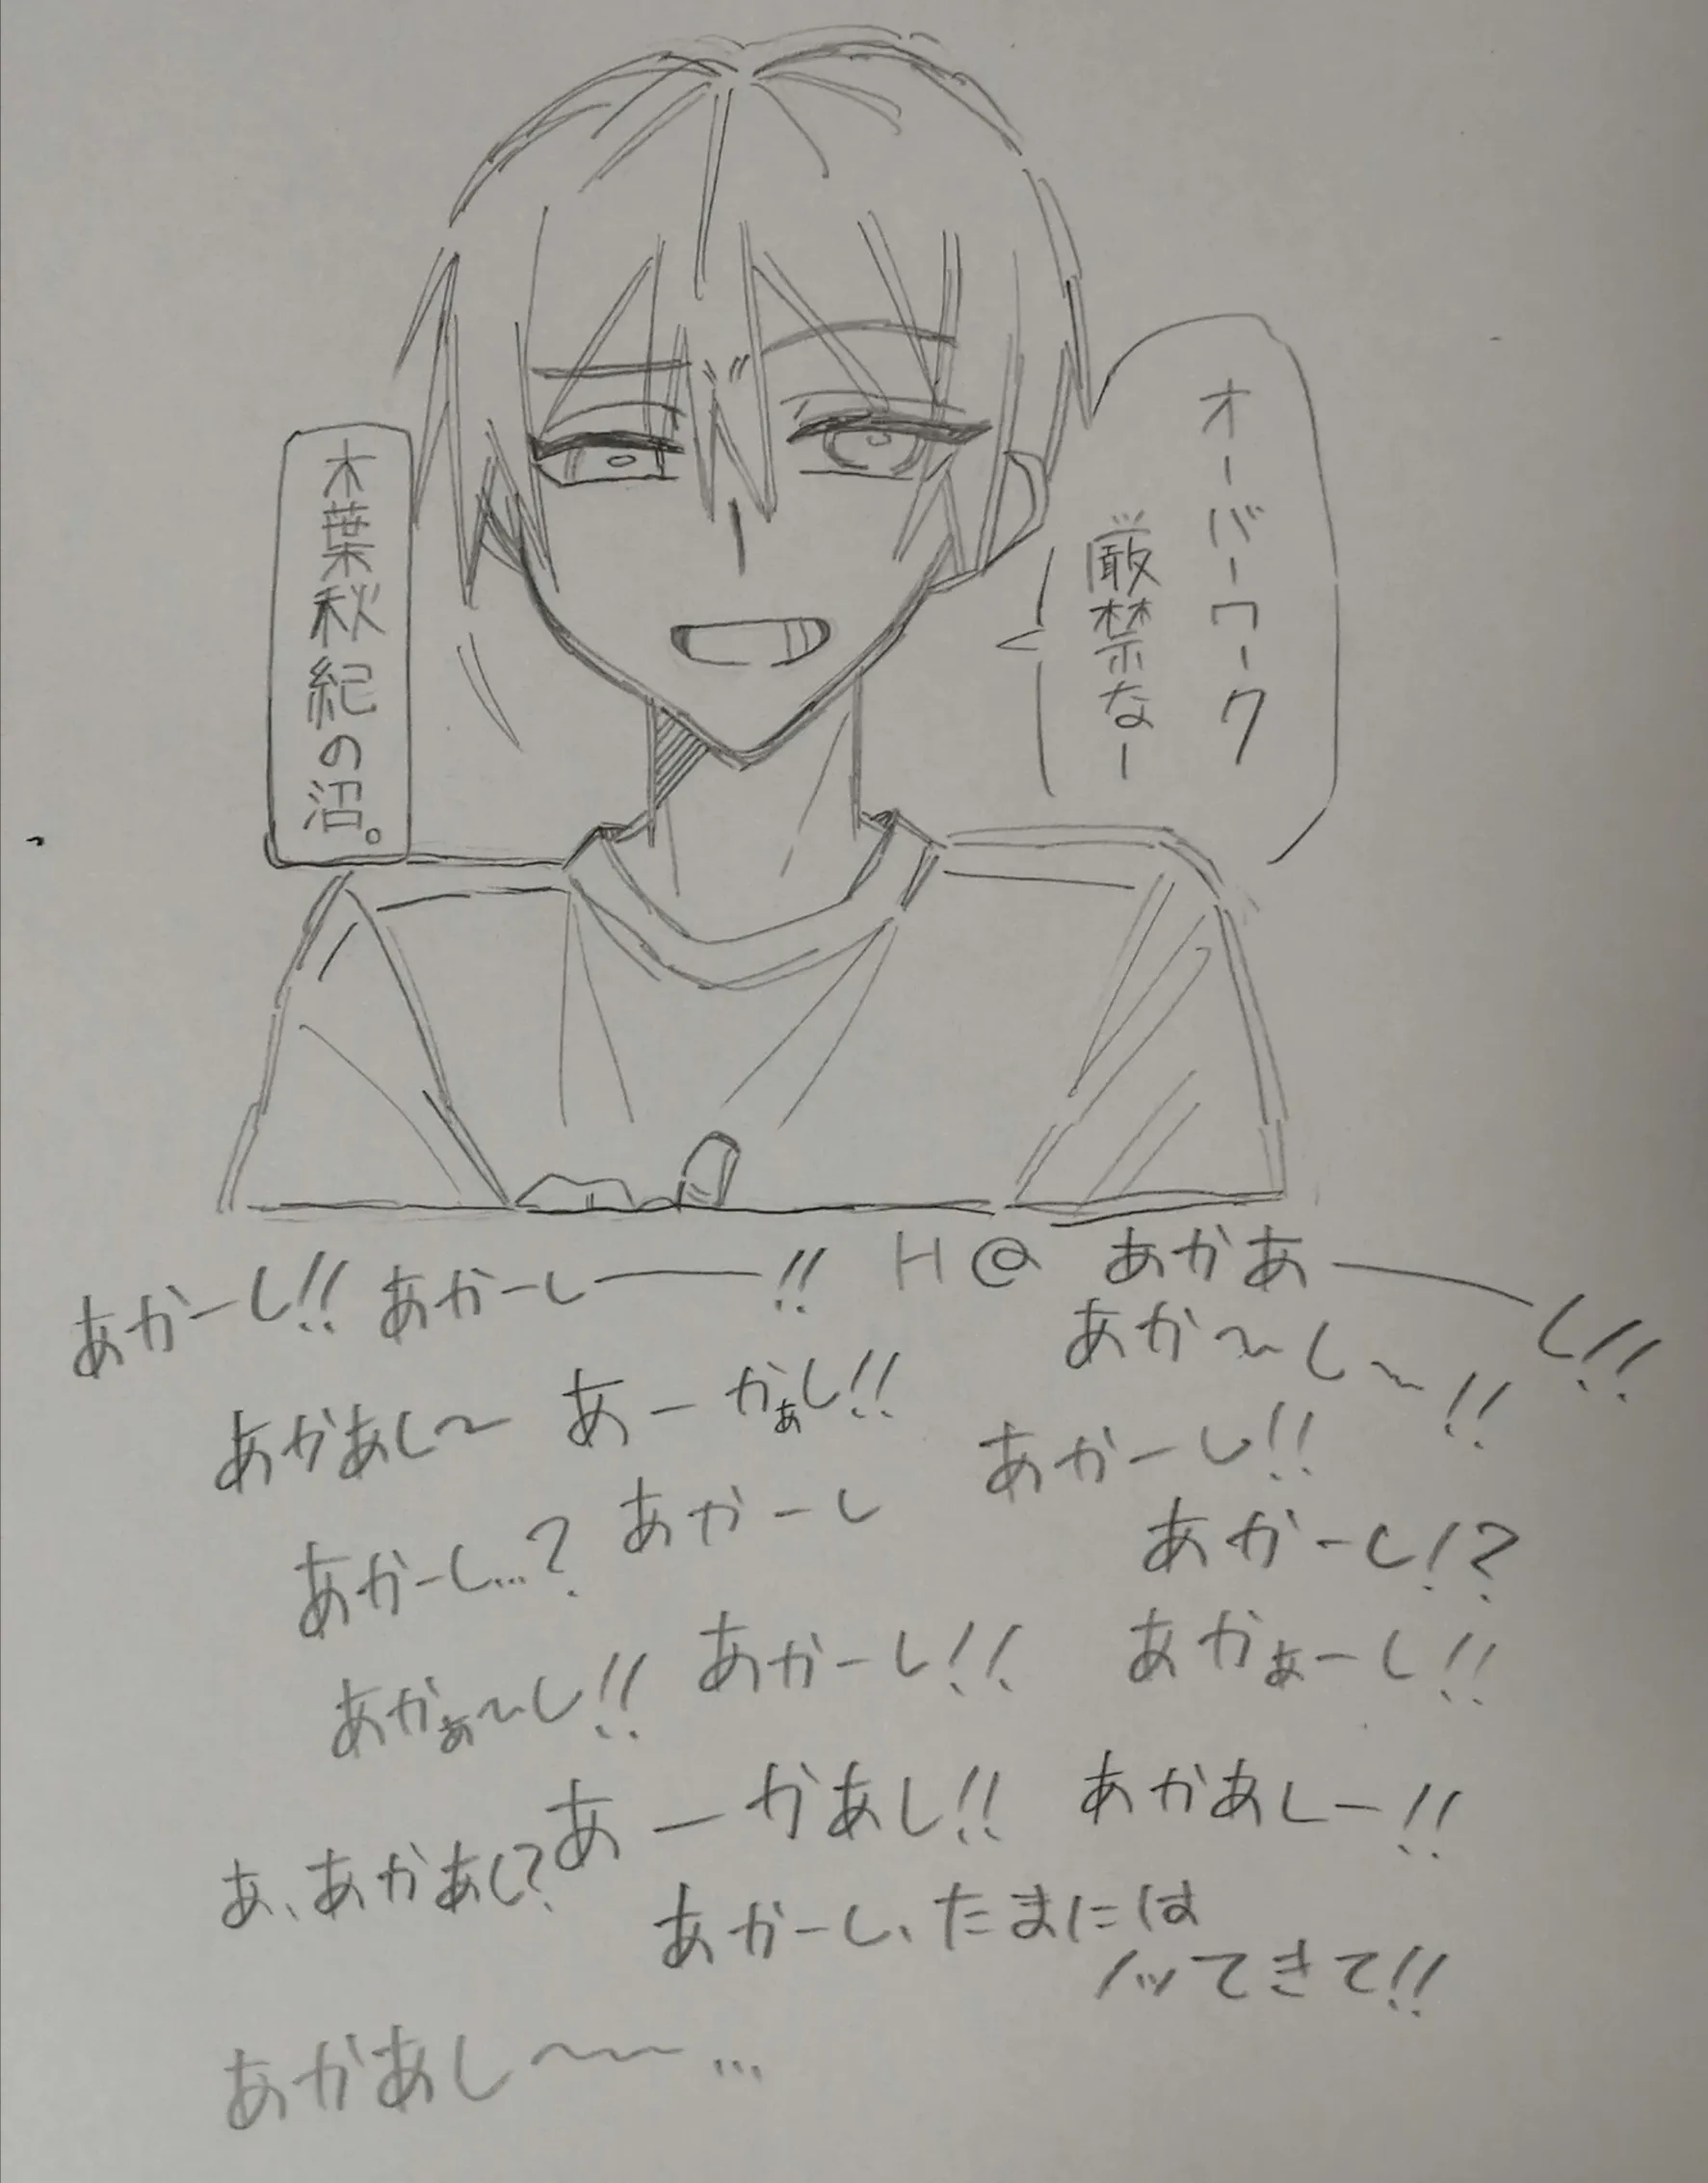 オーバーワーク
厳禁なー
木葉秋紀の沼。
あかーし!! あかーし――!! H@ あかあ――し!!
あか〜し〜!!
あかあし〜 あーかぁし!!
あかーし!!
あかーし…? あかーし
あかーし!?
あかぁ〜し!! あかーし!! あかぁーし!!
あーかあし!! あかあしー!!
あ、あかあし?
あかーし、たまには
ノッてきて!!
あかあし〜〜…